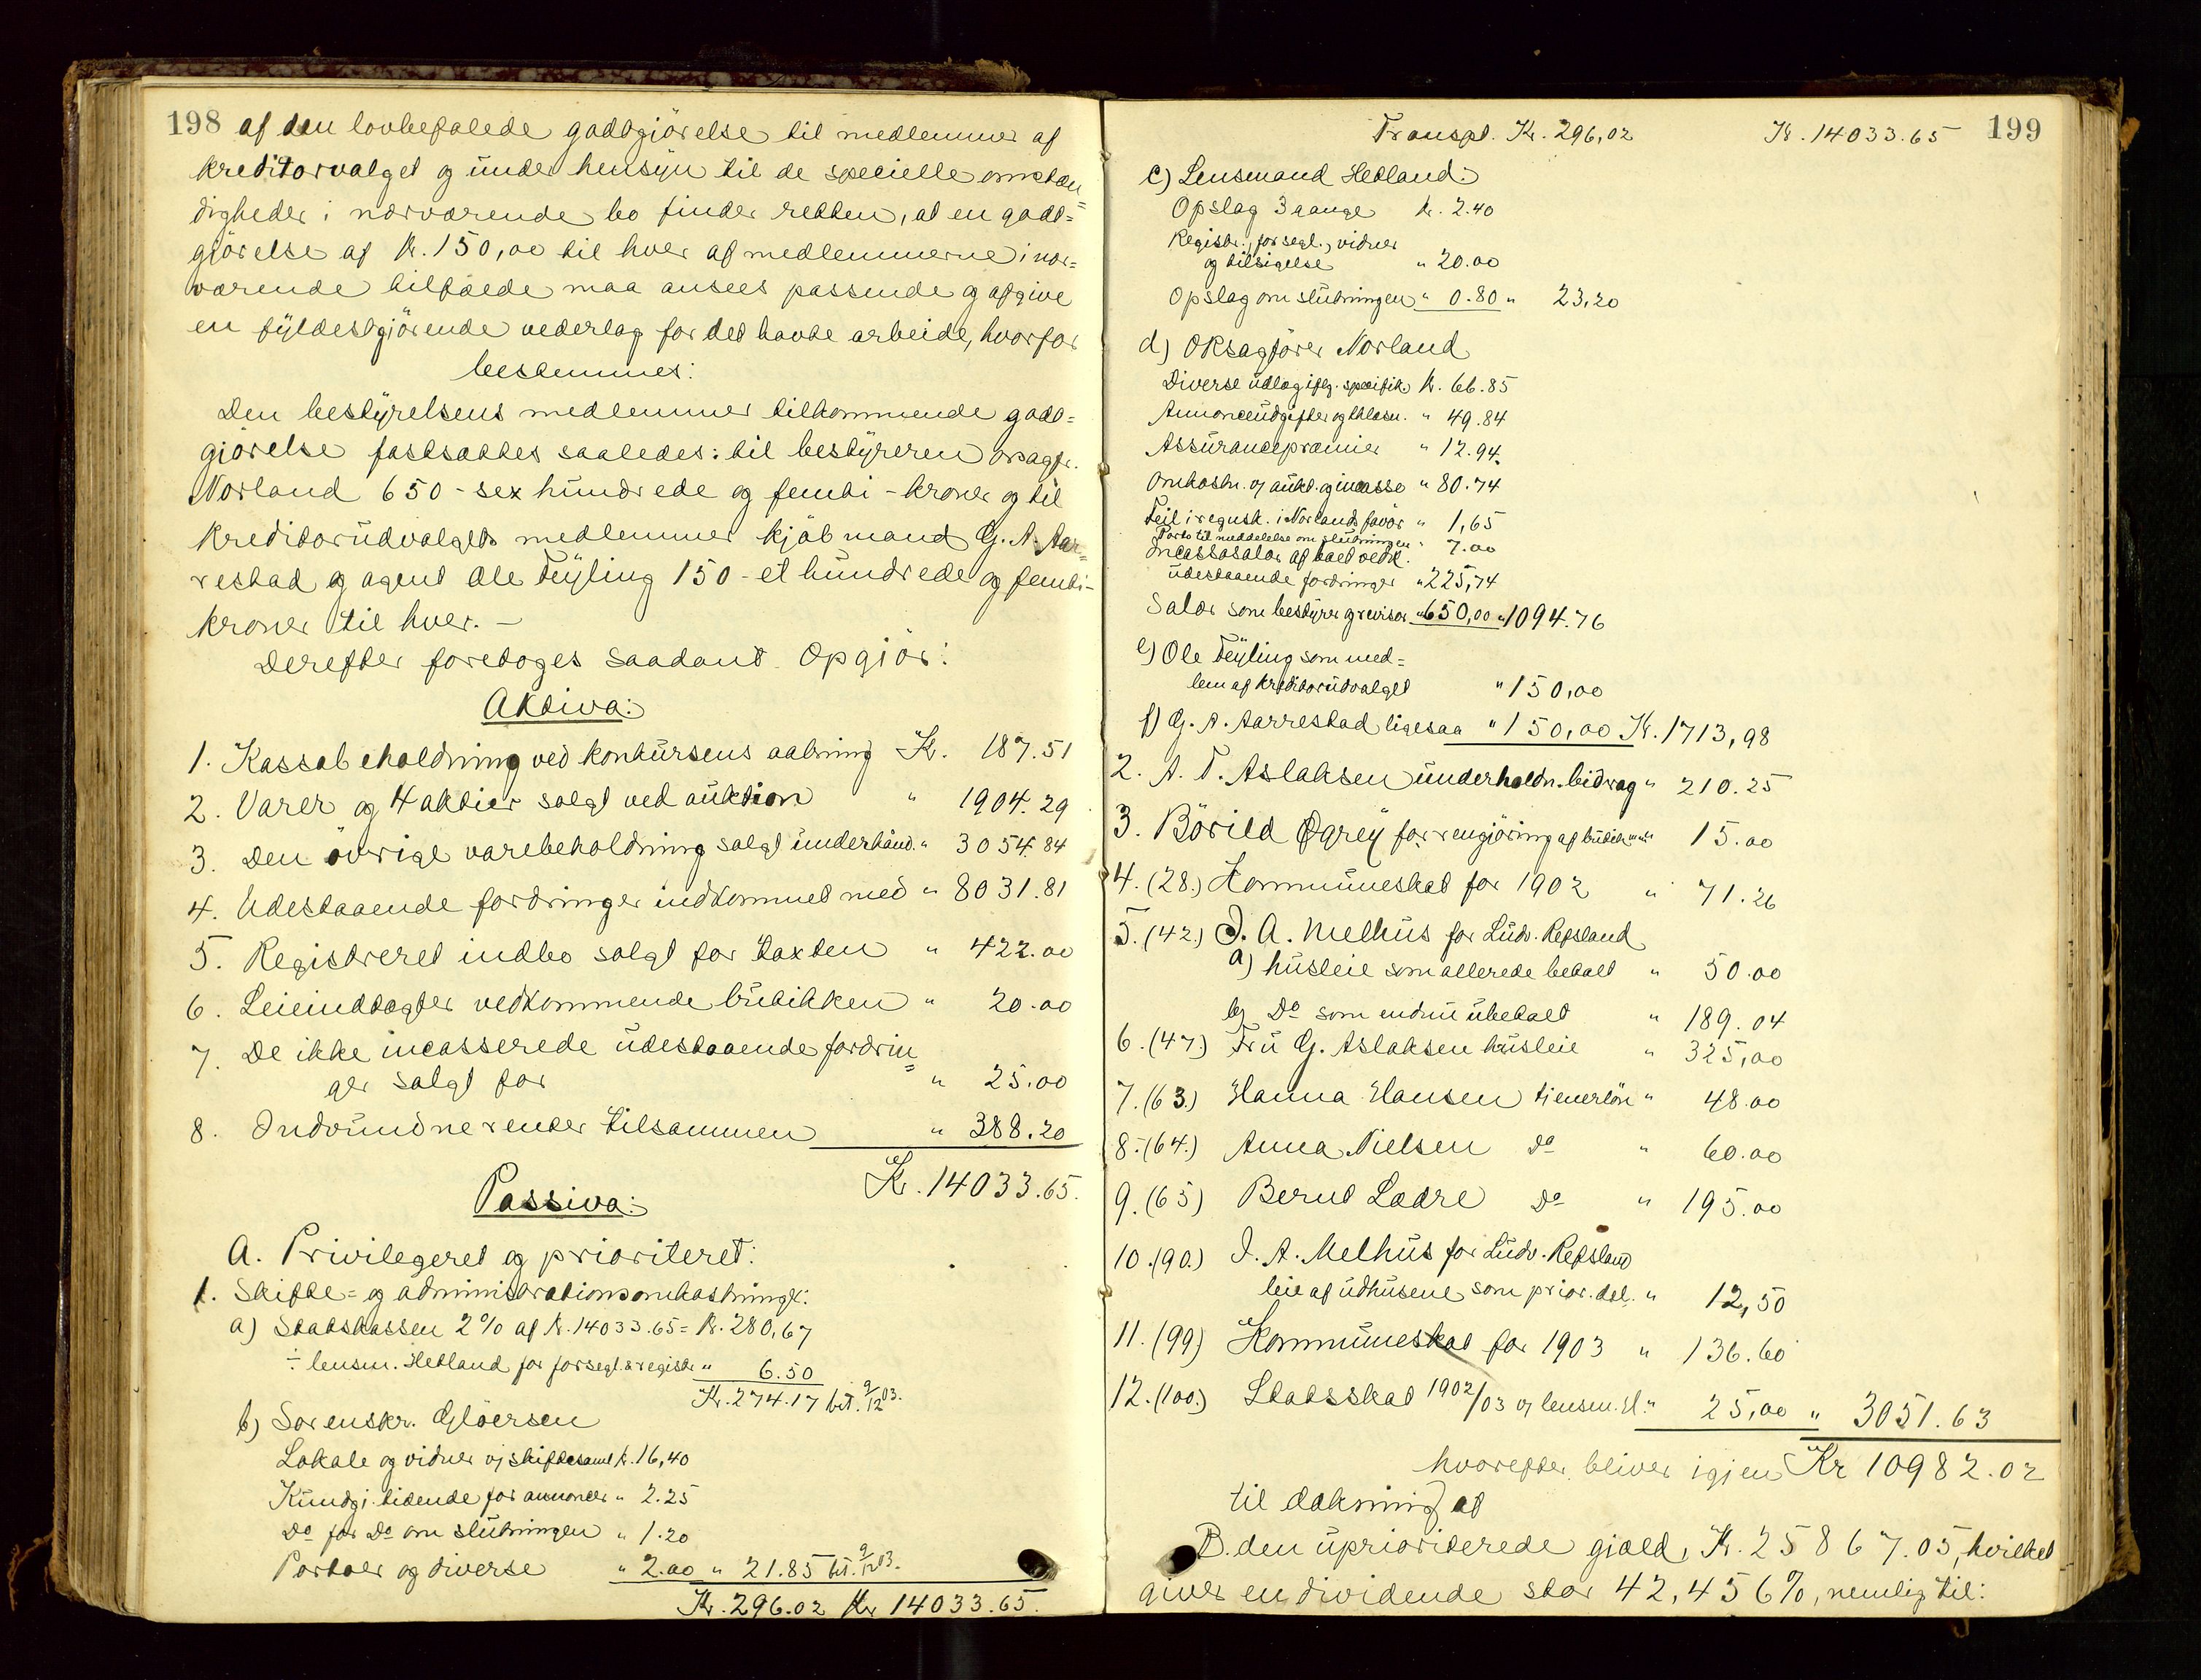 198 af den lovbefalede godtgjörelse til medlemmer af
kreditorvalget og under hensyn til de specielle omstæn=
digheder i nærværende bo finder retten, at en godt=
gjörelse af Kr. 150,00 til hver af medlemmerne i nær=
værende tilfælde maa ansees passende og afgive
en fyldestgjörende vederlag for det havte arbeide, hvorfor
bestemmes:
Den bestyrelsens medlemmer tilkommende godt=
gjörelse fastsættes saaledes: til bestyreren osagfr.
Norland 650 - sex hundrede og femti - kroner og til
kreditorudvalgets medlemmer kjöbmand G. A. Aar=
restad og agent Ole Teyling 150 - et hundrede og femti -
kroner til hver. -
Derefter foretoges saadant Opgjör:
Aktiva:
1. Kassabeholdning ved konkursens aabning Kr. 187.51
2. Varer og 4 aktier solgt ved auktion " 1904.29
3. Den övrige varebeholdning solgt underhånd. " 3054.84
4. Udestaaende fordringer indkommet med " 8031.81
5. Registreret indbo solgt for taxten " 422.00
6. Leieindtægter vedkommende butikken " 20.00
7. De ikke incasserede udestaaende fordrin=
ger solgt for " 25.00
8. Indvundne renter tilsammen " 388.20
Kr. 14033.65.
Passiva:
A. Privilegeret og prioriteret:
1. Skifte= og administrationsomkostninger:
a) Statskassen 2% af Kr. 14033.65 = Kr. 280,67
÷ lensm. Hetland for forsegl. & registr. " 6.50
Kr. 274.17 bet. 9/12 03.
b) Sorenskr. Gloersen
Lokale og vidner v/ skiftesaml. Kr. 16,40
Kundgj. tidende for annoncer " 2.25
Do for Do om slutningen " 1.20
Portoer og diverse " 2.00 " 21.85 bet. 9/12 03.
Kr. 296.02 Kr 14033.65.
Transpt. Kr. 296,02 Kr. 14033.65 199
c) Lensmand Hetland:
Opslag 3 gange Kr. 2.40
Registr., forsegl., vidner
og tilsigelse " 20.00
Opslag om slutningen " 0.80 " 23,20
d) Oksagförer Norland
Diverse udlæg iflg. specifik. Kr. 66.85
Annonceudgifter og tilkosn. " 49.84
Assurancepræmier " 12.94.
Omkostn. v/ aukt. og incasso " 80.74
Feil i regnsk. i Norlands favör " 1,65
Porto til meddelelse om slutningen " 7.00
Incassosalær af boet vedk.
udestaaende fordringer " 225,74
Salær som bestyrer og revisor " 650,00 " 1094.76
e) Ole Teyling som med=
lem af kreditorudvalget " 150,00
f) G. A. Aarrestad ligesaa " 150,00 Kr. 1713,98
2. A. T. Aslaksen underholdn. bidrag " 210.25
3. Börild Ogrey for rengjöring af butik " 15.00
4. (28.) Kommuneskat for 1902 " 71.26
5. (42.) J. A. Melhus for Ludv. Refsland
a) husleie som allerede betalt " 50.00
b) Do som endnu ubetalt " 189.04
6. (47.) Fru G. Aslaksen husleie " 325,00
7. (63.) Hanna Hansen tjenerlön " 48.00
8. (64.) Anna Nielsen do " 60.00
9. (65) Bernt Ladre Do " 195.00
10. (90.) J. A. Melhus for Ludv. Refsland
leie af udhusene som prior. del. " 12,50
11. (99) Kommuneskat for 1903 " 136.60
12. (100.) Statsskat 1902/03 v/ lensm. H. " 25,00 " 3051.63
hvorefter bliver igjen Kr 10982.02
til dækning af
B. den uprioriterede gjæld, Kr. 25867.05, hvilket
giver en dividende stor 42,456%, nemlig til: